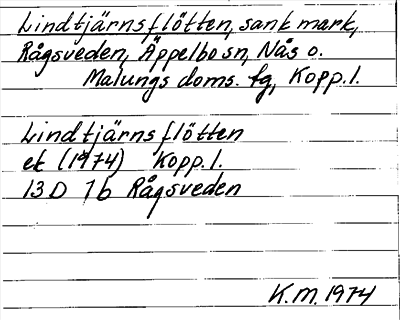 Lindtjärnsflötten, sank mark,
Rågsveden, Äppelbo sn, Nås o.
Malungs doms. fg, Kopp.l.
Lindtjärnsflötten
ek (1974) Kopp.l.
13D 7b Rågsveden
K.M. 1974